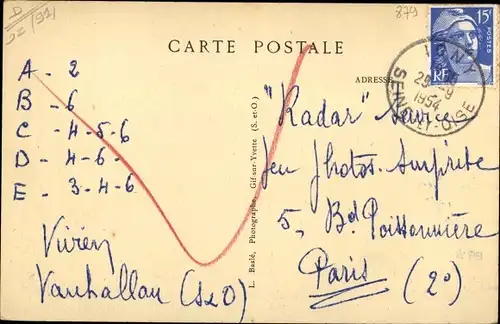 879
CARTE POSTALE
ADRESSE
15F
POSTES
RF
IGNY
25-9
1954
SEINE-ET-OISE
A - 2
B - 6
C - 4-5-6
D - 4-6-
E - 3-4-6
Vauhallan (S&O)
L. Baslé, Photographe, Gif-sur-Yvette (S.-et-O.)
"Radar" Service
jeu Photos-Surprise
5, Bd Poissonnière
Paris (2°)